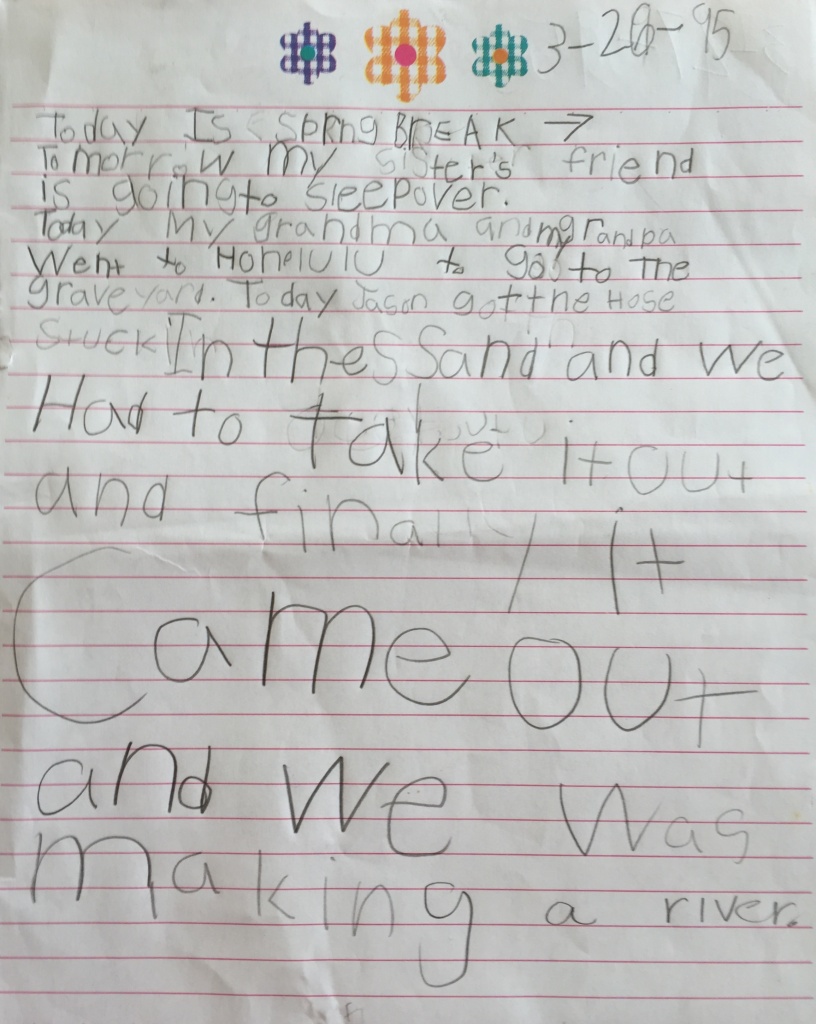 3-28-95
Today Is SpRng BREAK →
Tomorrow my sister's friend
is going to sleepover.
Today My grandma and my grandpa
Went to Honelulu to go to The
graveyard. Today Jason got the Hose
stuck In the Sand and we
Had to take it out
and finally it
Came out
and we was
making a river.